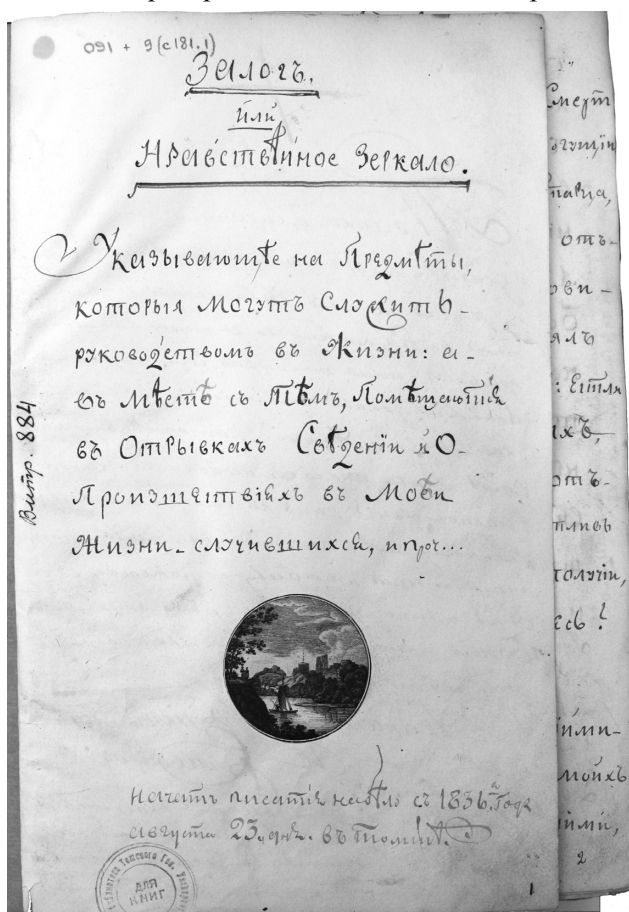 091 + 9(с181.1)
Залогъ,
Или
Нравствѣнное Зеркало.
Указывающѣе на Предмѣты,
которыя могутъ Служить
руководствомъ въ Жизни: а-
въ мѣстѣ съ тѣмъ, Помѣщаются
въ Отрывкахъ Свѣденіи и О-
Произшествіяхъ въ Моѣй
Жизни- случившихся, и проч...
Витр. 884
начатъ писатся набѣло съ 1836го Года
августа 23. дня. въ
Библиотека Томского Гос. Университета
ДЛЯ
КНИГ
1
Смерт
отъ-
: Естли
отъ-
толучіи,
есь?
моихъ
2